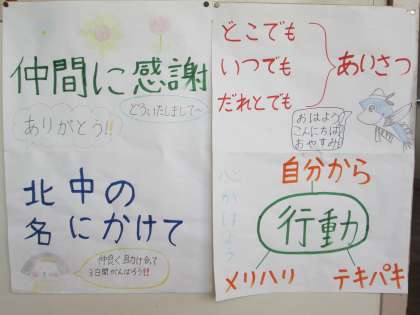 仲間に感謝
ありがとう!!
どういたしまして〜
北中の
名にかけて
仲良く助け合って
3日間がんばろう!!
どこでも
いつでも
だれとでも
あいさつ
おはよう
こんにちは
おやすみ
自分から
心がけよう
行動
メリハリ
テキパキ